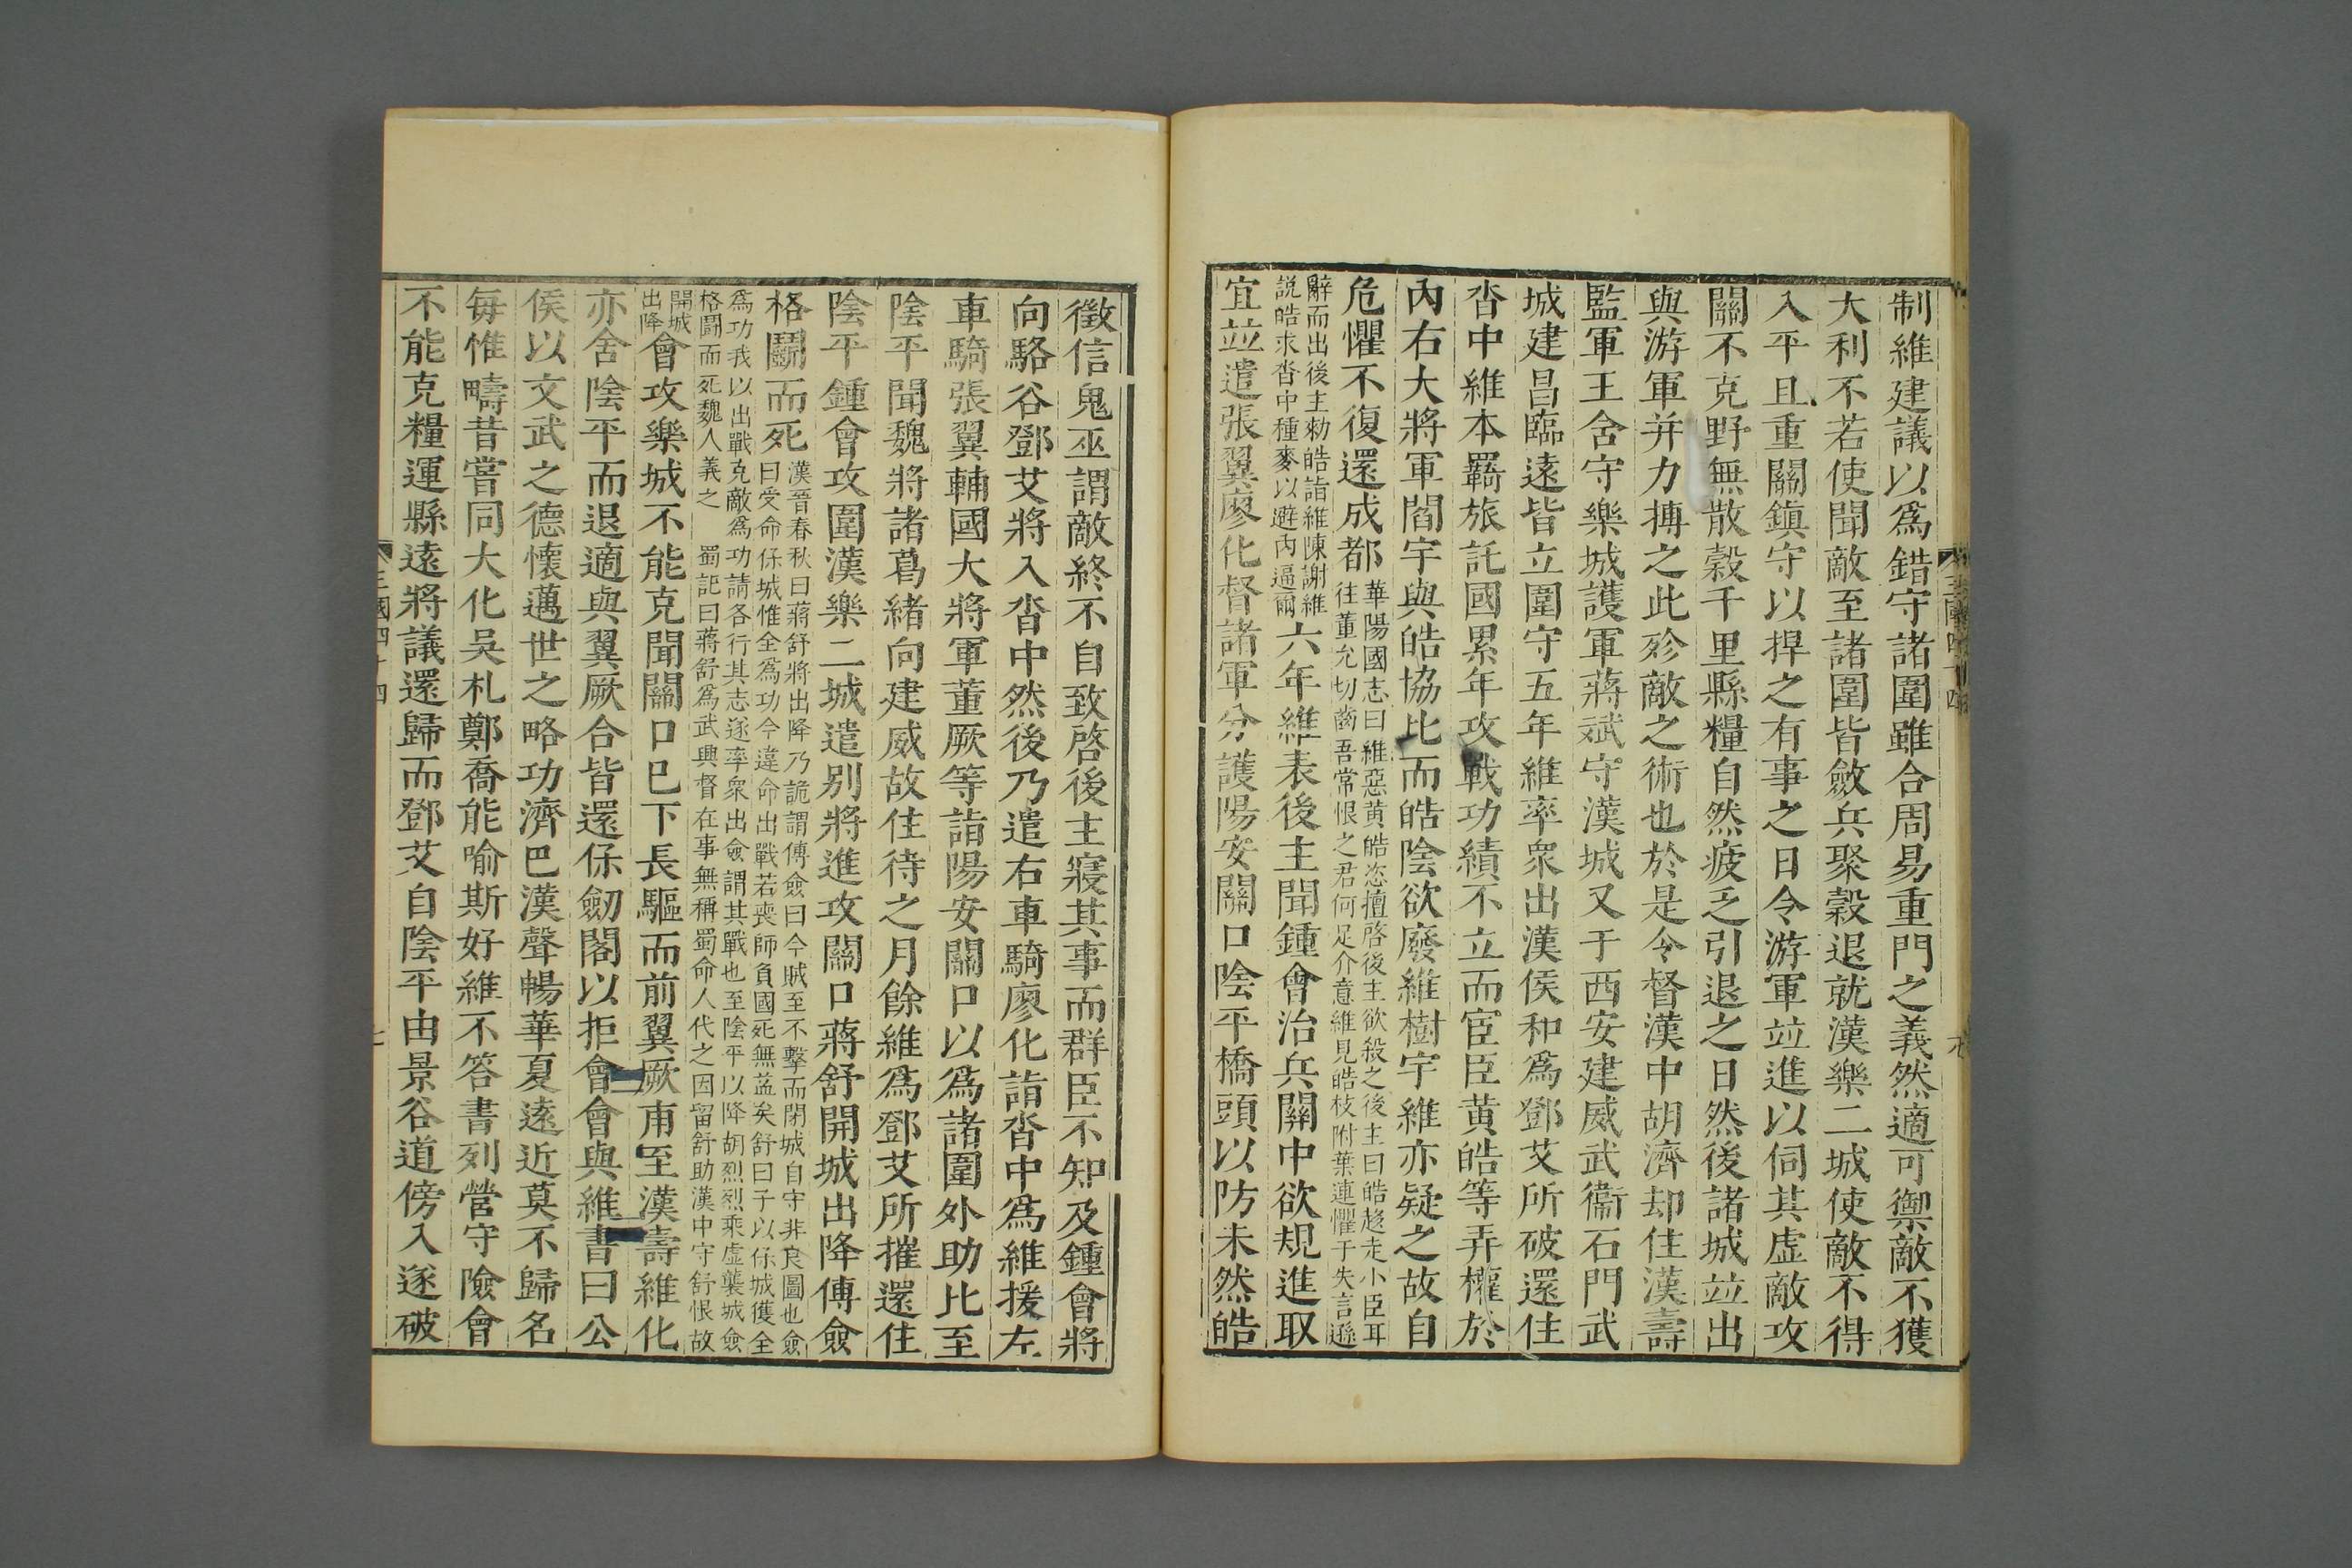 制維建議以爲錯守諸圍雖合周易重門之義然適可禦敵不獲
大利不若使聞敵至諸圍皆斂兵聚穀退就漢樂二城使敵不得
入平且重關鎮守以捍之有事之日令游軍竝進以伺其虛敵攻
關不克野無散穀千里縣糧自然疲乏引退之日然後諸城竝出
與游軍并力搏之此殄敵之術也於是令督漢中胡濟却住漢壽
監軍王含守樂城護軍蔣斌守漢城又于西安建威武衞石門武
城建昌臨遠皆立圍守五年維率衆出漢侯和爲鄧艾所破還住
沓中維本羇旅託國累年攻戰功績不立而宦臣黄皓等弄權於
內右大將軍閻宇與皓協比而皓陰欲廢維樹宇維亦疑之故自
危懼不復還成都
華陽國志曰維惡黄皓恣擅啓後主欲殺之後主曰皓趨走小臣耳
往董允切齒吾常恨之君何足介意維見皓枝附葉連懼于失言遜
辭而出後主勑皓詣維陳謝維
説皓求沓中種麥以避內逼爾
六年維表後主聞鍾會治兵關中欲規進取
宜竝遣張翼廖化督諸軍分護陽安關口陰平橋頭以防未然皓
徵信鬼巫謂敵終不自致啓後主寢其事而群臣不知及鍾會將
向駱谷鄧艾將入沓中然後乃遣右車騎廖化詣沓中爲維援左
車騎張翼輔國大將軍董厥等詣陽安關口以爲諸圍外助比至
陰平聞魏將諸葛緒向建威故住待之月餘維爲鄧艾所摧還住
陰平鍾會攻圍漢樂二城遣别將進攻關口蔣舒開城出降傅僉
格鬭而死
漢晉春秋曰蔣舒將出降乃詭謂傅僉曰今賊至不擊而閉城自守非良圖也僉
曰受命保城惟全爲功今違命出戰若喪師負國死無益矣舒曰子以保城獲全
爲功我以出戰克敵爲功請各行其志遂率衆出僉謂其戰也至陰平以降胡烈烈乘虛襲城僉
格鬭而死魏人義之　蜀記曰蔣舒爲武興督在事無稱蜀命人代之因留舒助漢中守舒恨故
開城
出降
會攻樂城不能克聞關口已下長驅而前翼厥甫至漢壽維化
亦舍陰平而退適與翼厥合皆還保劒閣以拒會會與維書曰公
侯以文武之德懷邁世之略功濟巴漢聲暢華夏遠近莫不歸名
每惟疇昔嘗同大化吳札鄭喬能喻斯好維不答書列營守險會
不能克糧運縣遠將議還歸而鄧艾自陰平由景谷道傍入遂破
三國四十四